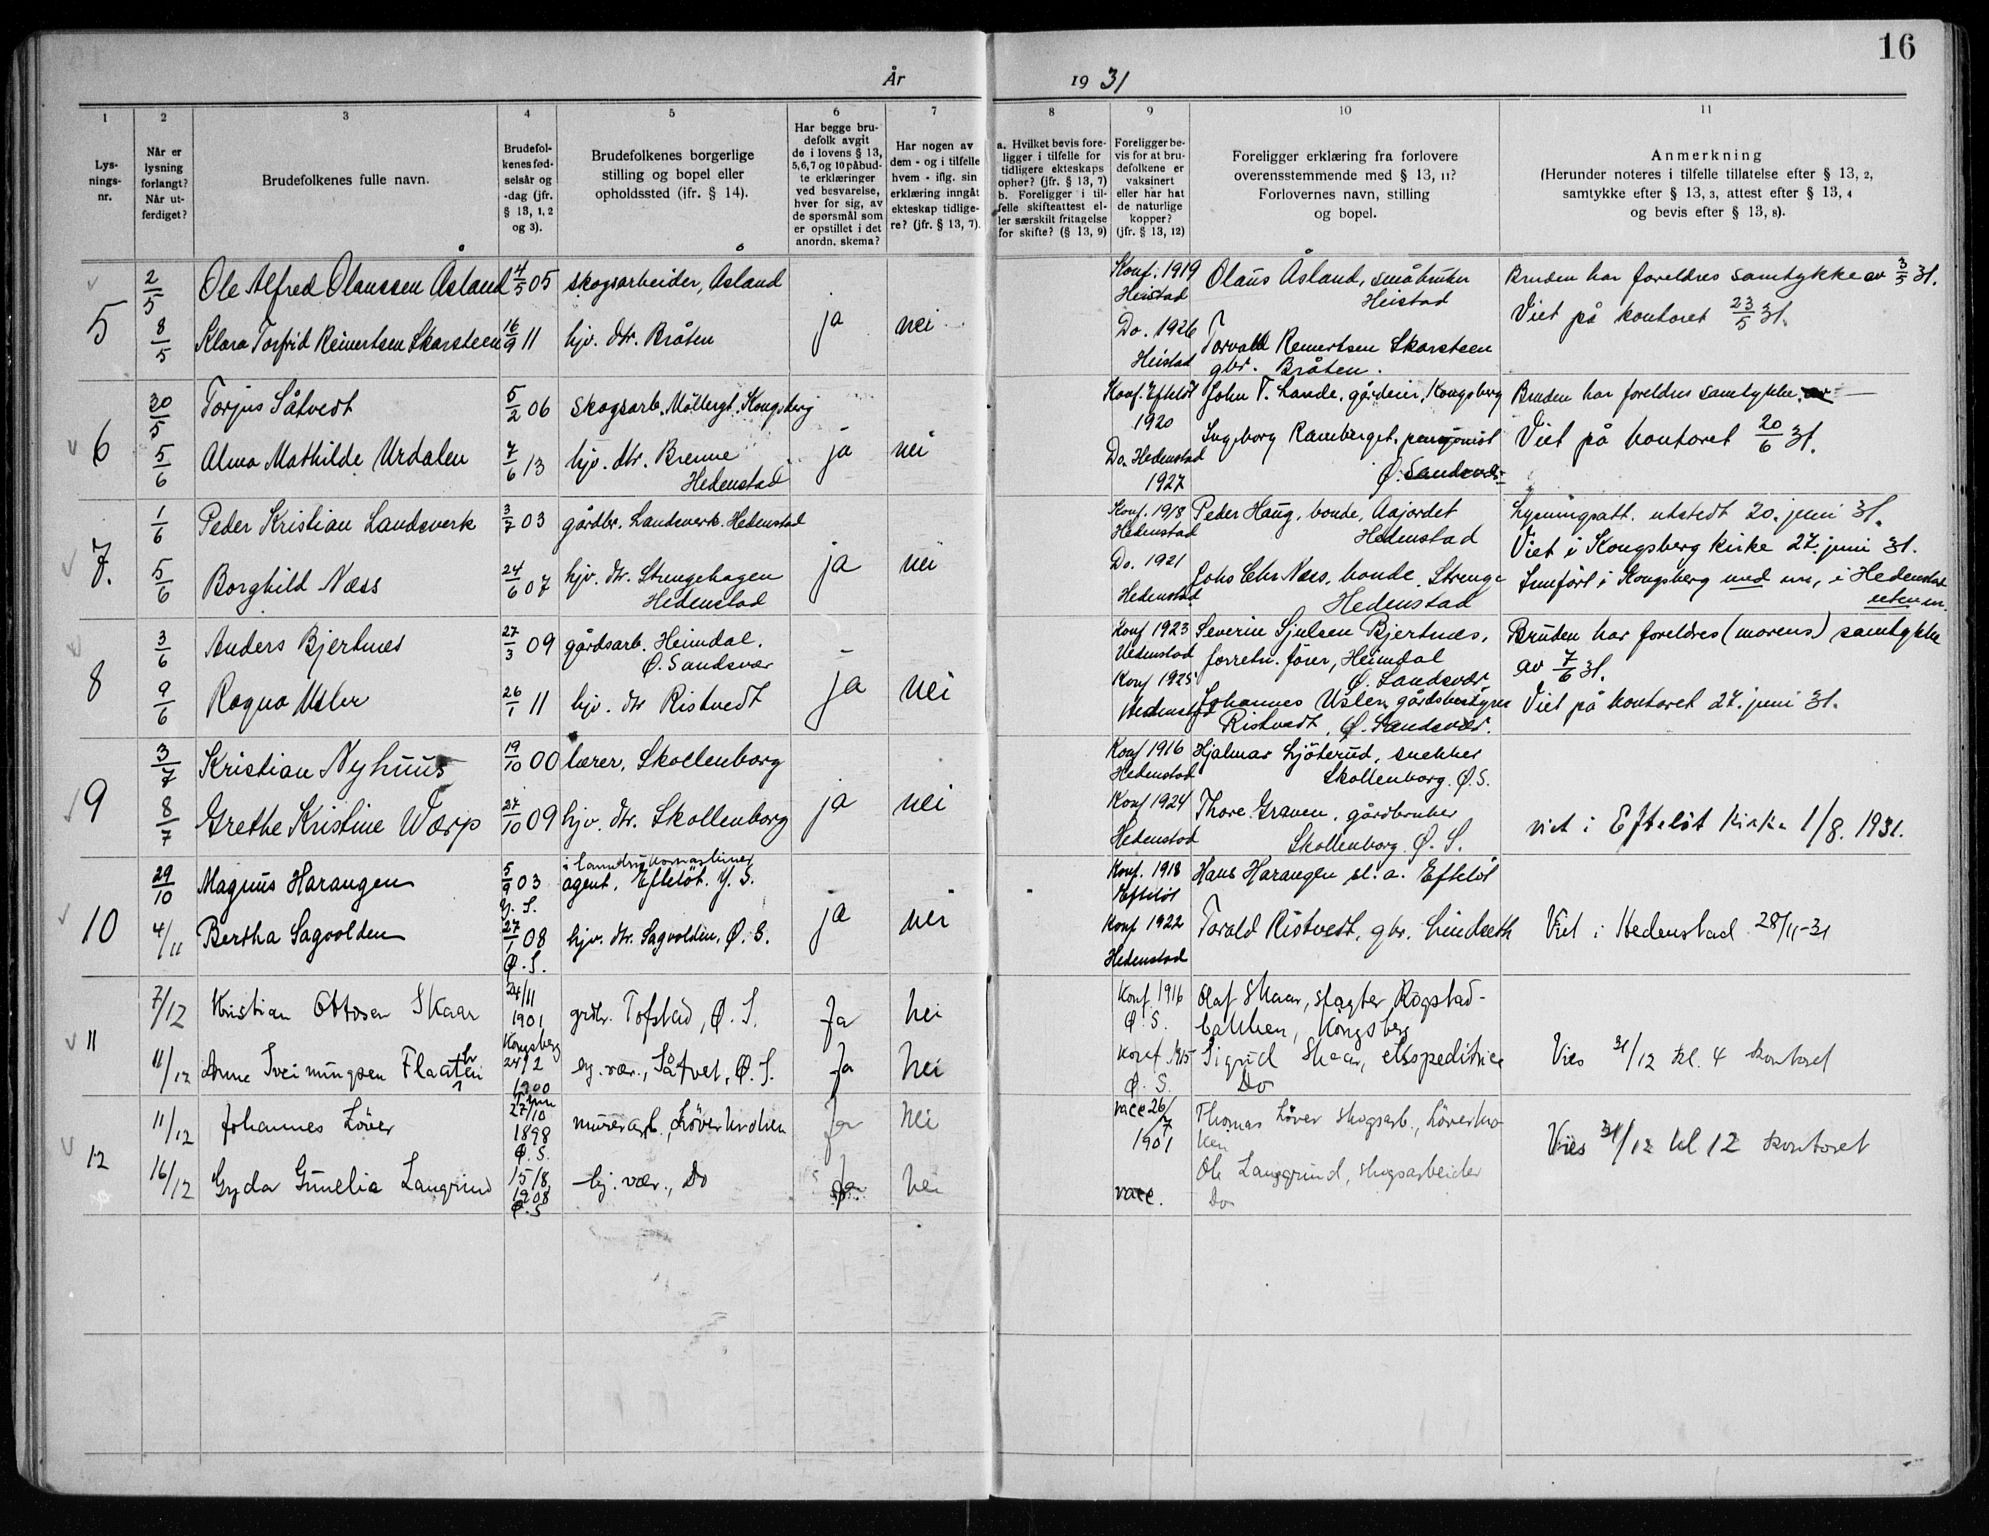 16
År 19 31
1 2 3 4 5 6 7 8 9 10 11
Lys-
nings-
nr.
Når er
lysning
forlangt?
Når ut-
ferdiget?
Brudefolkenes fulle navn.
Brudefol-
kenes fød-
selsår og
-dag (jfr.
§ 13, 1, 2
og 3).
Brudefolkenes borgerlige
stilling og bopel eller
opholdssted (ifr. § 14).
Har begge bru-
defolk avgit
de i lovens § 13,
5,6,7 og 10 påbud-
te erklæringer
ved besvarelse,
hver for sig, av
de spørsmål som
er opstillet i det
anordn. skema?
Har nogen av
dem - og i tilfelle
hvem - iflg. sin
erklæring inngåt
ekteskap tidlige-
re? (jfr. § 13, 7).
a. Hvilket bevis fore-
ligger i tilfelle for
tidligere ekteskaps
ophør? (jfr. § 13, 7)
b. Foreligger i til-
felle skifteattest el-
ler særskilt fritagelse
for skifte? (§ 13, 9)
Foreligger be-
vis for at bru-
defolkene er
vaksinert
eller har hat
de naturlige
kopper?
(jfr. § 13, 12)
Foreligger erklæring fra forlovere
overensstemmende med § 13, 11?
Forlovernes navn, stilling
og bopel.
Anmerkning
(Herunder noteres i tilfelle tillatelse efter § 13, 2,
samtykke efter § 13, 3, attest efter § 13, 4
og bevis efter § 13, 8).
5
2/5 Ole Alfred Olaussen Åsland 4/5 05 skogsarbeider, Åsland
8/5 Klara Torfrid Reinertsen Skarsteen 16/9 11 hjv. dtr. Bråten ja nei
Konf. 1919
Heistad
Do. 1926
Heistad
Olaus Åsland, småbruker
Heistad
Torvald Reinertsen Skarsteen
gbr. Bråten.
Bruden har foreldres samtykke av 3/5 31.
Viet på kontoret 23/5 31.
6
30/5 Torjus Såtvedt 5/2 06 skogsarb. Möllergt. Kongsberg
5/6 Alma Mathilde Urdalen 7/6 13 hjv. dtr. Brenne
Hedenstad ja nei
Konf. Efteløt
1920
Do. Hedenstad
1927
John T. Lande, gårdeier, Kongsberg
Ingeborg Ramberget, pensjonist
Ø. Sandsvær
Bruden har foreldres samtykke. av
Viet på kontoret 20/6 31.
7.
1/6 Peder Kristian Landsverk 3/7 03 gårdbr. Landsverk. Hedenstad
5/6 Borghild Næss 24/6 07 hjv. dtr. Strengehagen
Hedenstad ja nei
Konf. 1918
Hedenstad
Do. 1921
Hedenstad
Peder Haug, bonde, Aajordet
Hedenstad
Johs Chr Næss, bonde, Strenge
Hedenstad
Lysningsatt. utstedt 20. juni 31.
Viet i Kongsberg kirke 27. juni 31.
Innført i Kongsberg med nr., i Hedenstad
uten nr.
8
3/6 Anders Bjertnes 27/3 09 gårdsarb. Heimdal.
Ø. Sandsvær
9/6 Ragna Usler 26/1 11 hjv. dtr Ristvedt ja nei
Konf 1923
Hedenstad
Konf 1925
Hedenstad
Severin Sjulsen Bjertnæs,
forretn. fører, Heimdal
Ø. Sandsvær
Johannes Usler, gårdsbestyrer
Ristvedt, Ø. Sandsvær.
Bruden har foreldres (morens) samtykke
av 7/6 31.
Viet på kontoret 27. juni 31.
9
3/7 Kristian Nyhuus 19/10 00 lærer, Skollenborg
8/7 Grethe Kristine Wærp 27/10 09 hjv. dtr. Skollenborg ja nei
Konf 1916
Hedenstad
Konf 1924
Hedenstad
Hjalmar Ljøterud, snekker
Skollenborg. Ø.S.
Thore Graven, gårdbruker
Skollenborg. Ø. S.
viet i Efteløt kirke 1/8. 1931.
10
29/10 Magnus Harangen 5/9 03 agent, Efteløt. Y. S.
Y. S.
4/11 Bertha Sagvolden 27/1 08 hjv. dtr. Sagvolden, Ø. S. ja nei
Ø. S.
Konf. 1918
Efteløt
Konf 1922
Hedenstad
Hans Harangen st. a. Efteløt
Torald Ristvedt, gbr. Lindseth
Viet i Hedenstad 28/11-31
11
7/12 Kristian Ottosen Skaar 24/11
1901
Kongsberg
grdbr. Tofstad, Ø. S. Ja Nei
11/12 Anne Tveimingsen Flaaten 24/2
1900
hj. vær., Såtvet, Ø. S. Ja Nei
Konf. 1916
Ø. S.
Konf. 1915
Ø. S.
Olaf Skaar, slagter Rogstad-
bakken, Kongsberg
Sigrid Skaar, ekspeditrice
Do
Vies 31/12 kl. 4 kontoret
12
11/12 Johannes Löver 27/10
1898
Ø. S.
murerarb., Löverkroken Ja Nei
16/12 Gyda Gunelia Langrind 15/8,
1908
Ø. S
hj. vær., Do Ja Nei
vacc 26/7
1901
vacc.
Thomas Löver skogsarb., Löverkro-
ken
Ole Langgrund, skogsarbeider
Do
Vies 31/12 kl 12 kontoret